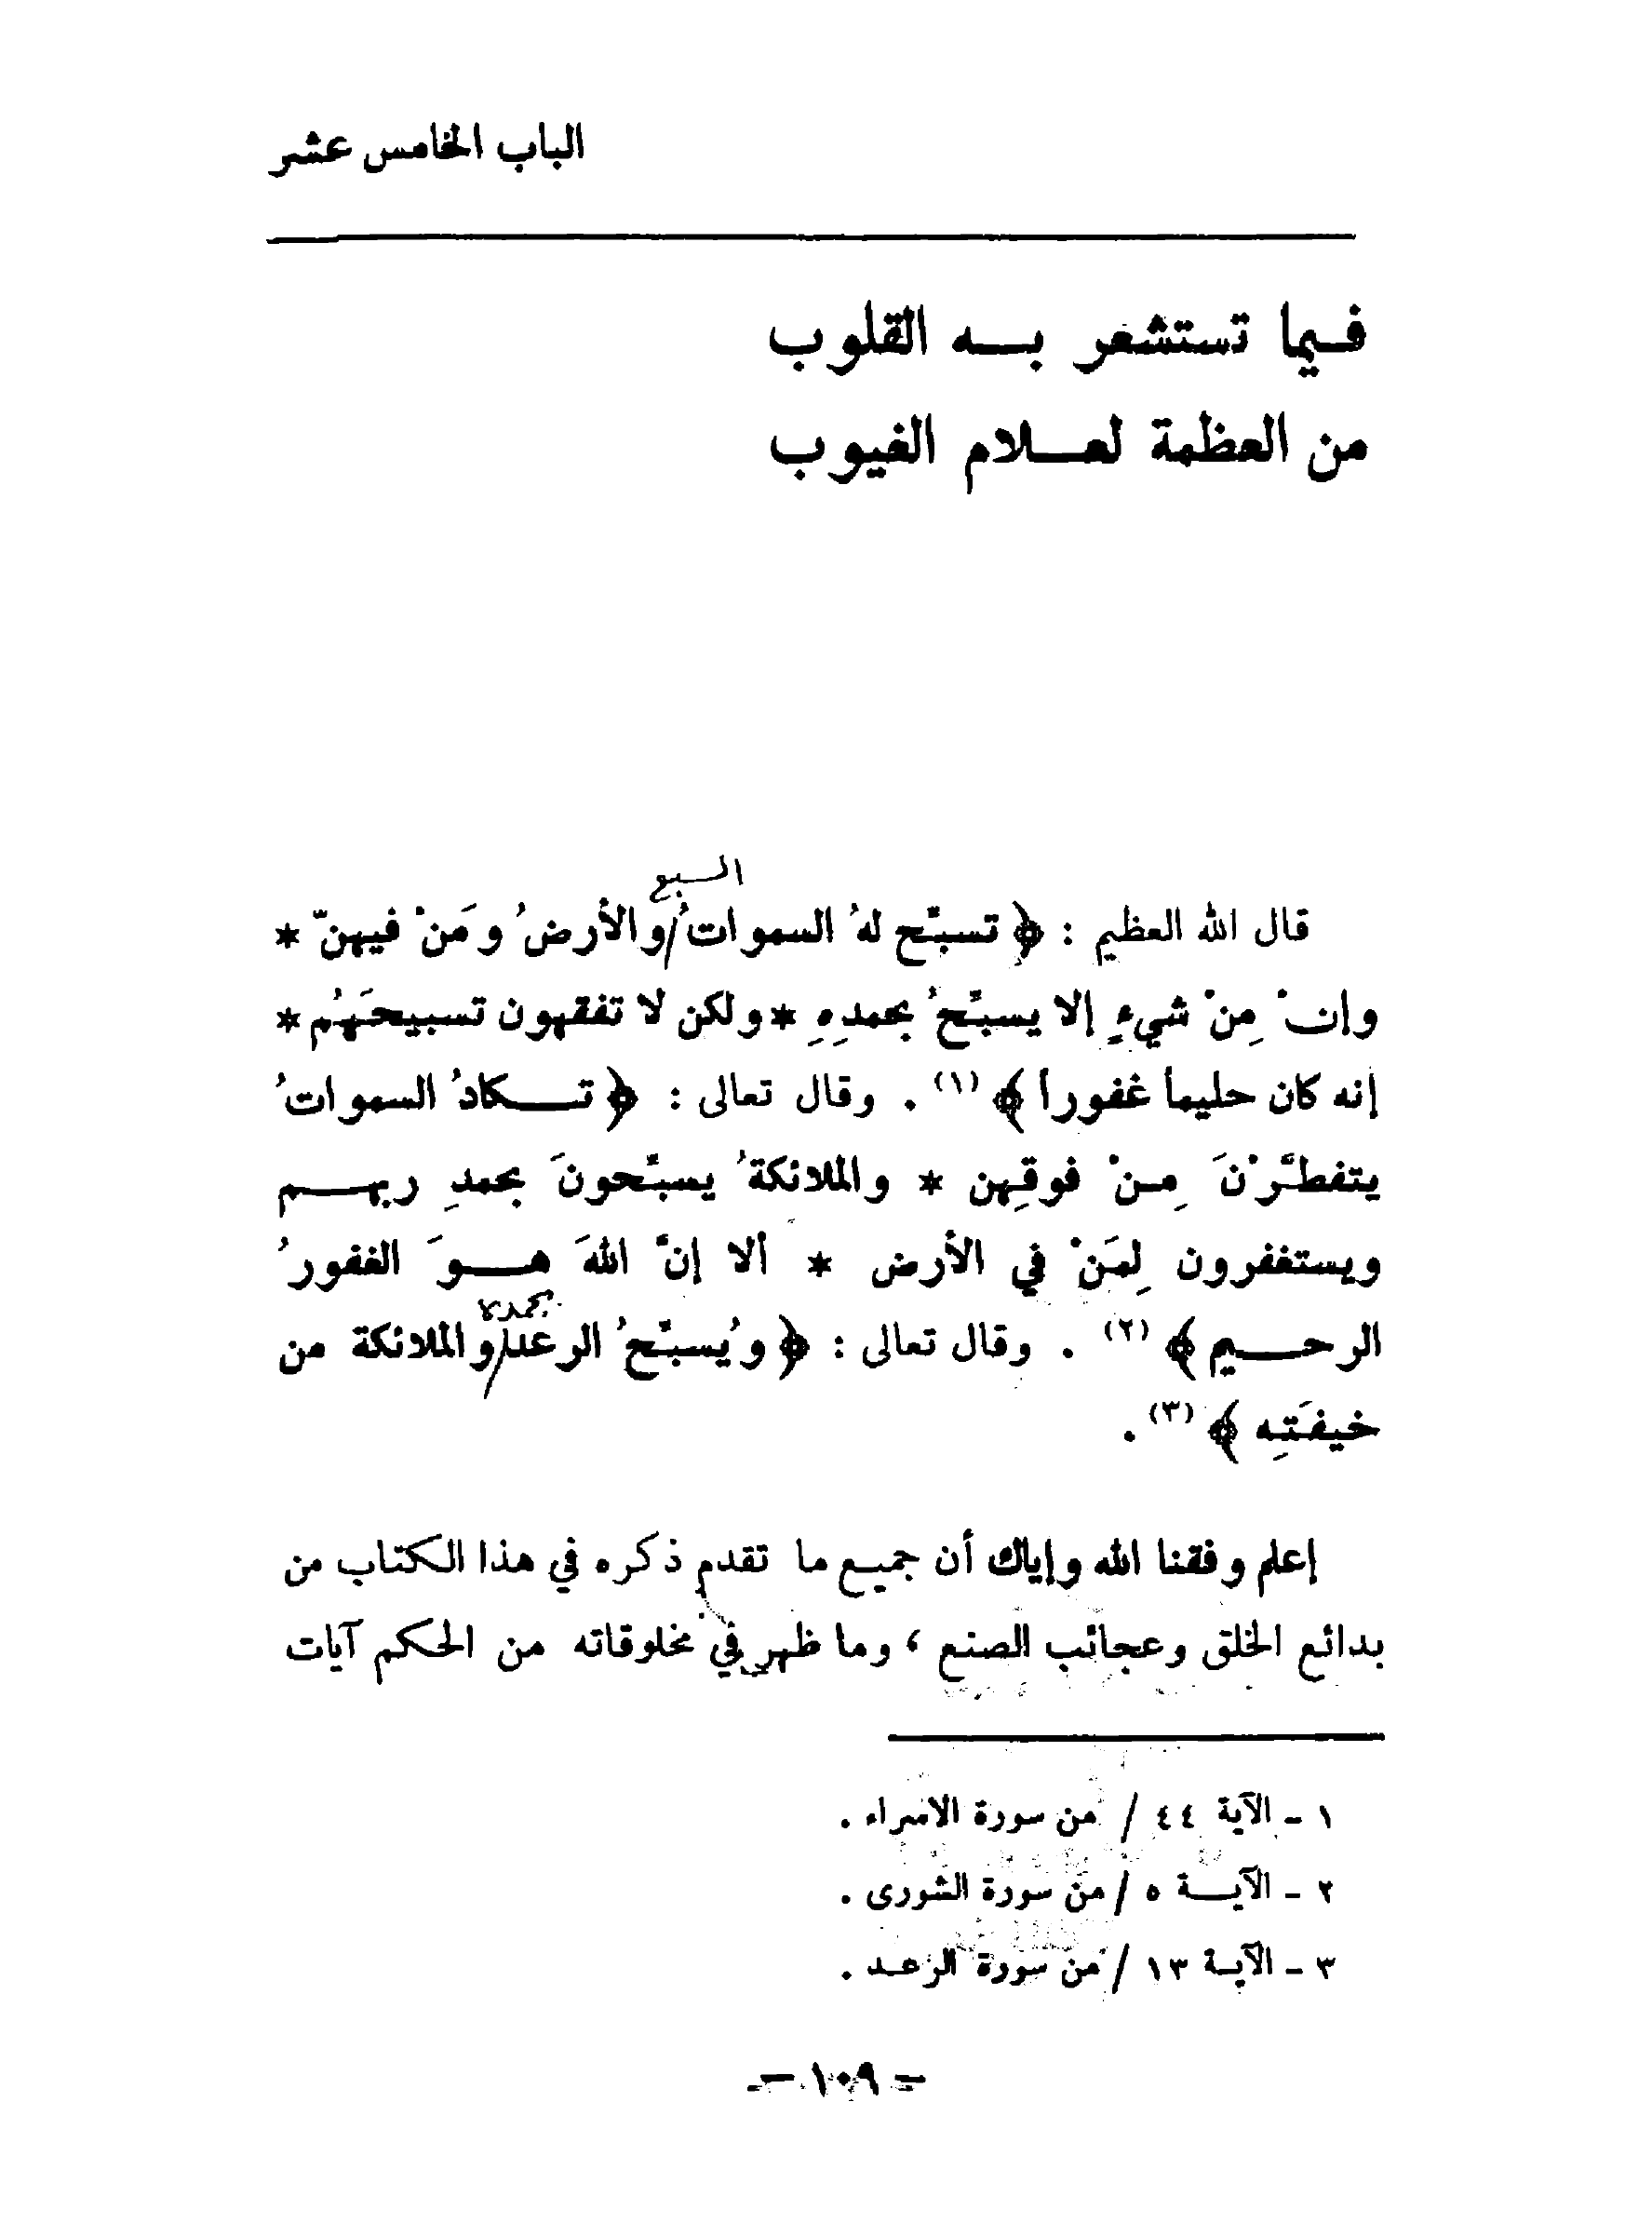 الباب الخامس عشر
فيما تستشعر به القلوب
من العظمة لعلام الغيوب
السبع
قال الله العظيم : ﴿ تسبّح لهُ السموات/ُ والأرضُ ومَنْ فيهنّ *
وإنْ مِنْ شيءٍ إلا يسبّحُ بحمدِهِ * ولكن لا تفقهون تسبيحَهُم *
إنه كان حليما غفورا ﴾ (١) . وقال تعالى : ﴿ تكادُ السمواتُ
يتفطّرْنَ مِنْ فوقِهن * والملائكةُ يسبّحونَ بحمدِ ربهم
ويستغفرون لِمَنْ في الأرض * ألا إنّ اللهَ هوَ الغفورُ
بحمده
الرحيم ﴾ (٢) . وقال تعالى : ﴿ ويُسبّحُ الرعد/ والملائكة من
خيفَتِه ﴾ (٣) .
إعلم وفقنا الله وإياك أن جميع ما تقدم ذكره في هذا الكتاب من
بدائع الخلق وعجائب الصنع ، وما ظهر في مخلوقاته من الحكم آيات
١ - الآية ٤٤ / من سورة الاسراء .
٢ - الآية ٥ / من سورة الشورى .
٣ - الآية ١٣ / من سورة الرعد .
- ١٠٩ -